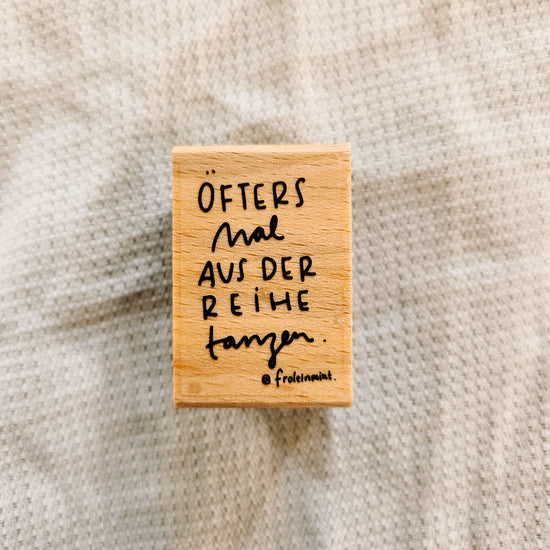 ÖFTERS
mal
AUS DER
REiHE
tanzen.
@froleinmint.